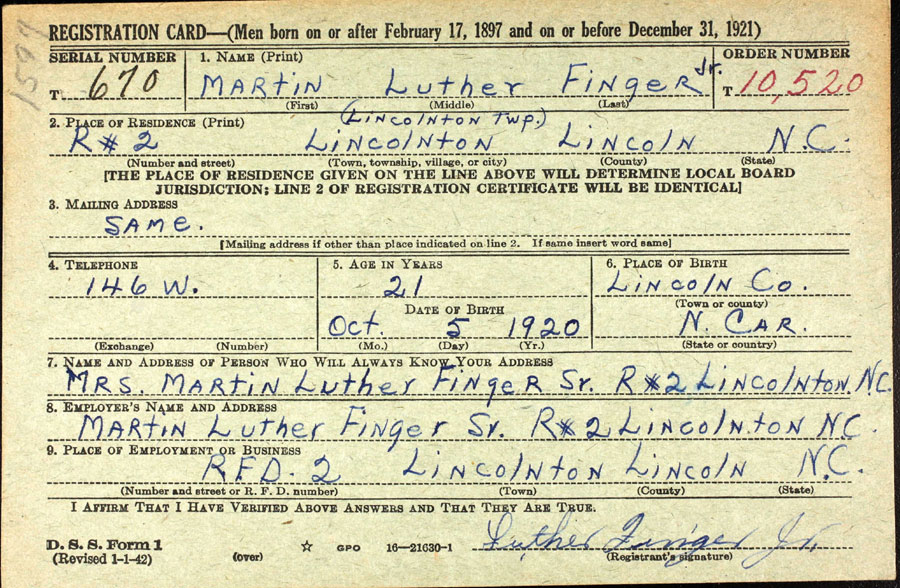 1597
REGISTRATION CARD—(Men born on or after February 17, 1897 and on or before December 31, 1921)
SERIAL NUMBER 1. NAME (Print) ORDER NUMBER
T 670 MARTIN Luther Finger Jr. T 10,520
(First) (Middle) (Last)
2. PLACE OF RESIDENCE (Print) (LINCOLNTON TWP.)
R# 2 LINCOLNTON LINCOLN N.C.
(Number and street) (Town, township, village, or city) (County) (State)
[THE PLACE OF RESIDENCE GIVEN ON THE LINE ABOVE WILL DETERMINE LOCAL BOARD
JURISDICTION; LINE 2 OF REGISTRATION CERTIFICATE WILL BE IDENTICAL]
3. MAILING ADDRESS
SAME.
[Mailing address if other than place indicated on line 2. If same insert word same]
4. TELEPHONE 5. AGE IN YEARS 6. PLACE OF BIRTH
146 W. 21 LINCOLN Co.
DATE OF BIRTH (Town or county)
Oct. 5 1920 N. CAR.
(Exchange) (Number) (Mo.) (Day) (Yr.) (State or country)
7. NAME AND ADDRESS OF PERSON WHO WILL ALWAYS KNOW YOUR ADDRESS
MRS. MARTIN Luther Finger Sr. R#2 LINCOLNTON, N.C.
8. EMPLOYER'S NAME AND ADDRESS
MARTIN Luther Finger Sr. R#2 LINCOLNTON N.C.
9. PLACE OF EMPLOYMENT OR BUSINESS
R.F.D. 2 LINCOLNTON LINCOLN N.C.
(Number and street or R. F. D. number) (Town) (County) (State)
I AFFIRM THAT I HAVE VERIFIED ABOVE ANSWERS AND THAT THEY ARE TRUE.
D. S. S. Form 1
(Revised 1-1-42) (over) ☆ GPO 16—21630-1 Luther Finger Jr.
(Registrant's signature)